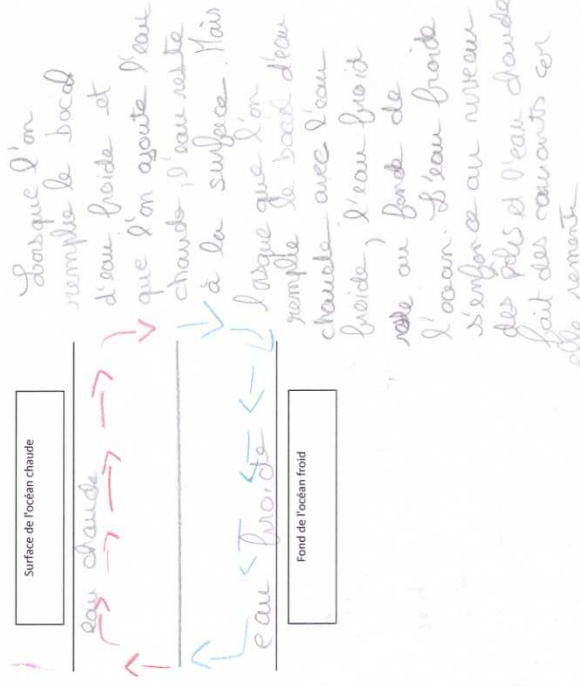 Surface de l'océan chaude
eau chaude
eau froide
Fond de l'océan froid
Lorsque l'on
remplie le bocal
d'eau froide et
que l'on ajoute l'eau
chaude, l'eau reste
à la surface. Mais
lorsque que l'on
remplie le bocal d'eau
chaude avec l'eau
froide, l'eau froid
reste au fonde de
l'ocean. L'eau froide
s'enfonce au niveau
des poles et l'eau chaude
fait des courants car
elle remonte